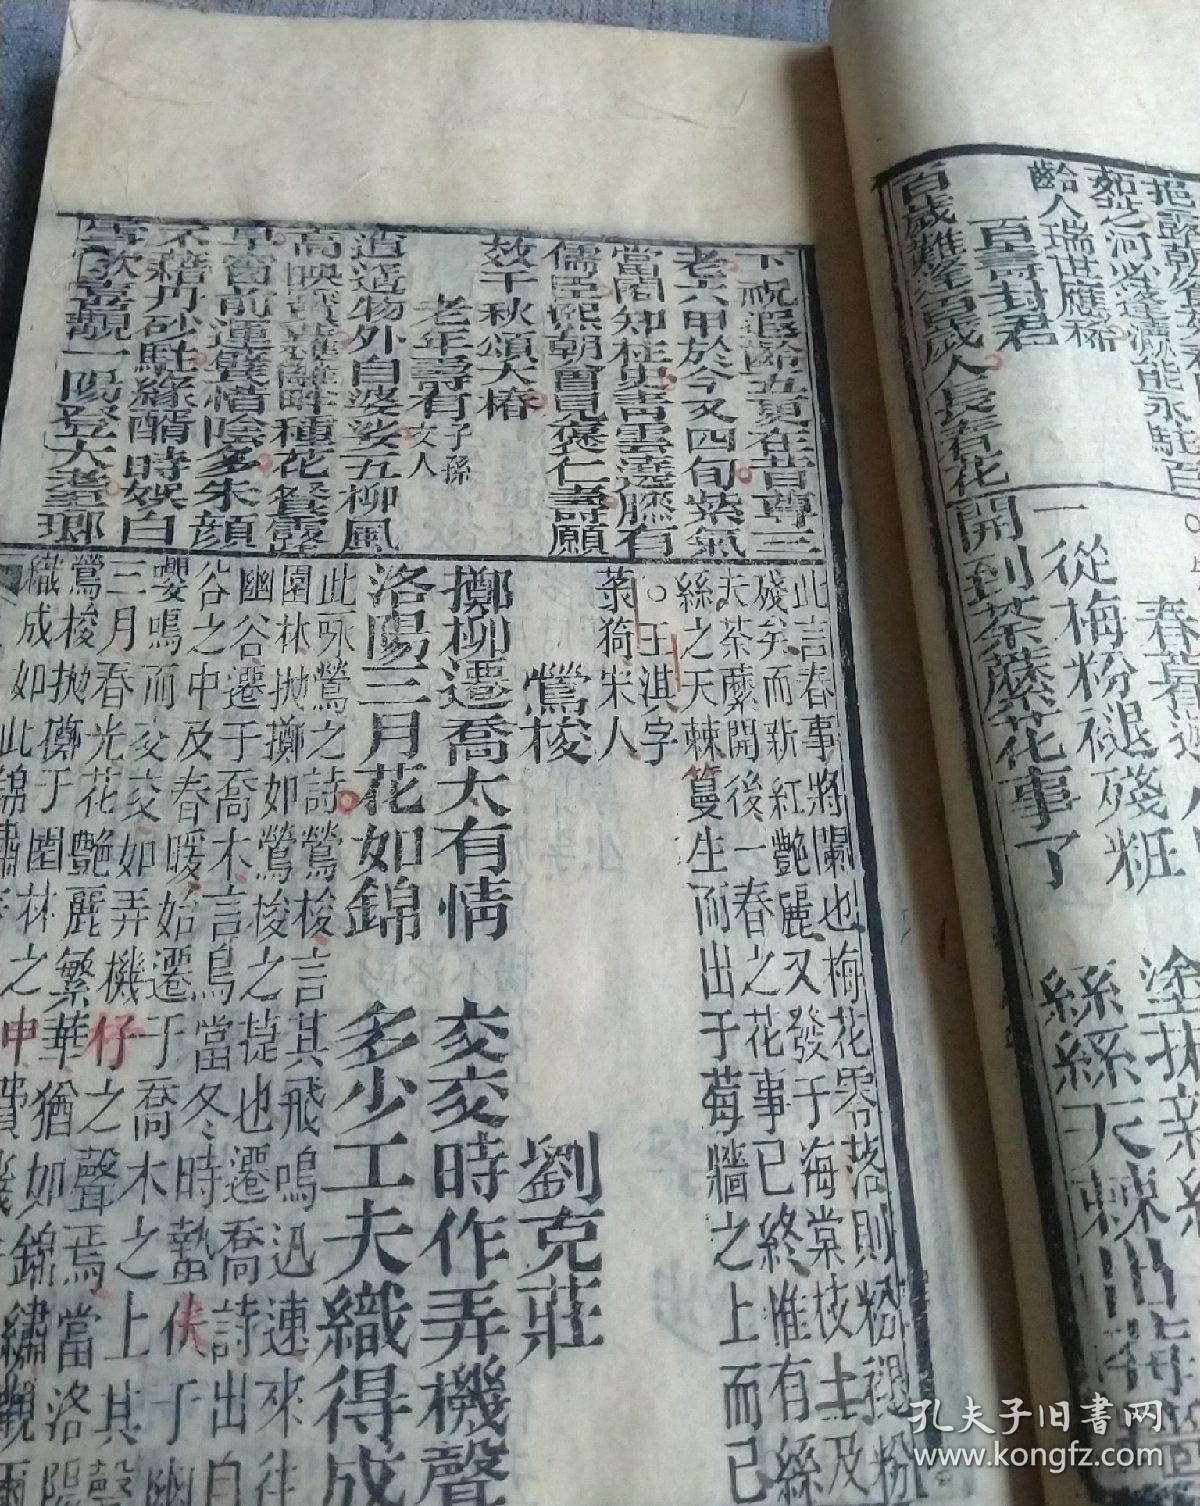 百壽封君
齡人瑞世應稀
百歲難逢百歲人長春花
一從梅粉褪殘粧
開到荼蘼花事了
絲絲天棘出
此言春事將闌也梅花零落則粉褪粉
殘矣而新紅艷麗又發于海棠枝上及
夫荼蘼開後一春之花事已終惟有絲
絲之天棘蔓生而出于莓牆之上而已
○王淇字
菉猗宋人
鶯梭 劉克莊
擲柳遷喬大有情 交交時作弄機聲
洛陽三月花如錦 多少工夫織得成
此咏鶯之詩鶯梭言其飛鳴迅速來往
園林拋擲如鶯梭之捷也遷喬詩出自
幽谷遷于喬木言鳥當冬時蟄伏于幽
谷之中及春暖始遷于喬木之上其
嚶鳴而交交如弄機杼之聲焉當洛陽
三月春光花艷麗繁華猶如錦繡
鶯梭拋擲于園林之中費
織成如此錦繡
老六甲於今又四旬紫氣
當關知柱史青雲遶膝有
儒臣熙朝曾見褒仁壽願
效千秋頌大椿
老年壽有子孫文人
逍遥物外自婆娑五柳風
高映
籬畔種花餐露
窗前運甓惜陰多朱顏
不藉丹砂駐緑醑時娛白
雪歌喜覩一陽登大耋瑯
孔夫子旧書网
www.kongfz.com